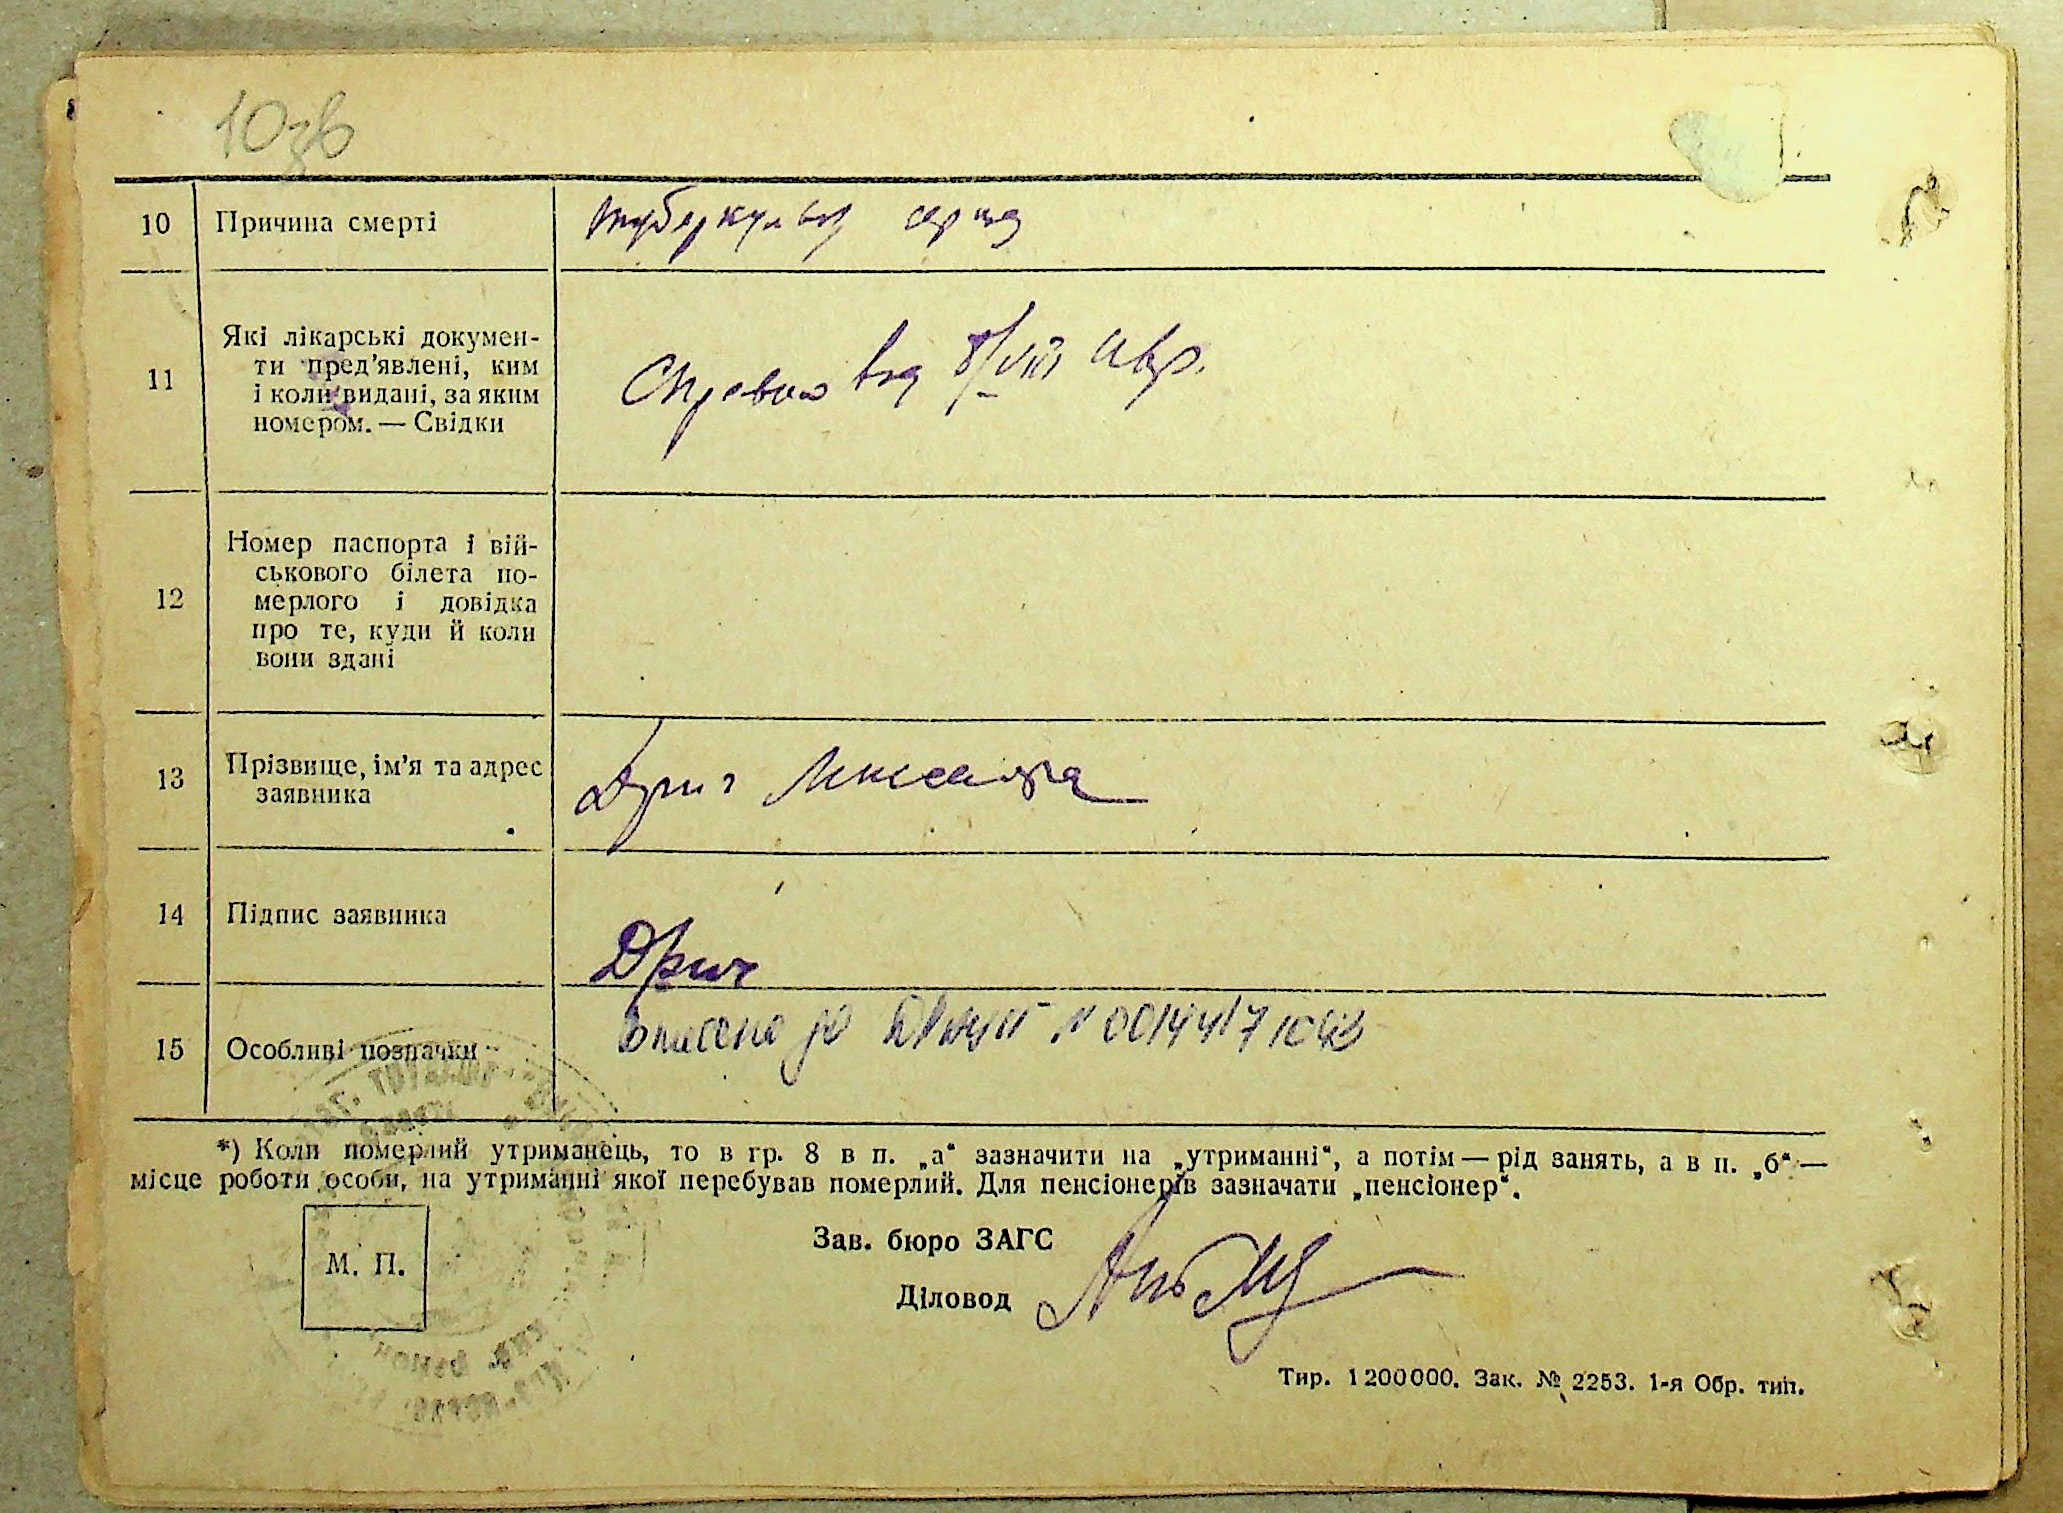 10зв
10 Причина смерті
туберкульоз серця
11 Які лікарські докумен-
ти пред'явлені, ким
і коли видані, за яким
номером. — Свідки
Справка від 8/VIII
12 Номер паспорта і вій-
ськового білета по-
мерлого і довідка
про те, куди й коли
вони здані
13 Прізвище, ім'я та адрес
заявника
Дрич
14 Підпис заявника
Дрич
15 Особливі позначки
Внесено до N 00144171043
*) Коли померлий утриманець, то в гр. 8 в п. „а“ зазначити на „утриманні“, а потім — рід занять, а в п. „б“ —
місце роботи особи, на утриманні якої перебував померлий. Для пенсіонерів зазначати „пенсіонер“.
М. П.
Зав. бюро ЗАГС
Діловод
Тир. 1200000. Зак. № 2253. 1-я Обр. тип.